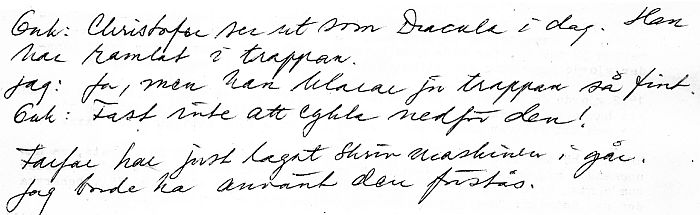 Enh: Christofer ser ut som Dracula i dag. Han
har ramlat i trappan.
Jag: Ja, men han klarar ju trappan så fint.
Enh: Fast inte att cykla nedför den!
Farfar har just lagat skrivmaskinen i går.
Jag borde ha använt den förstås.